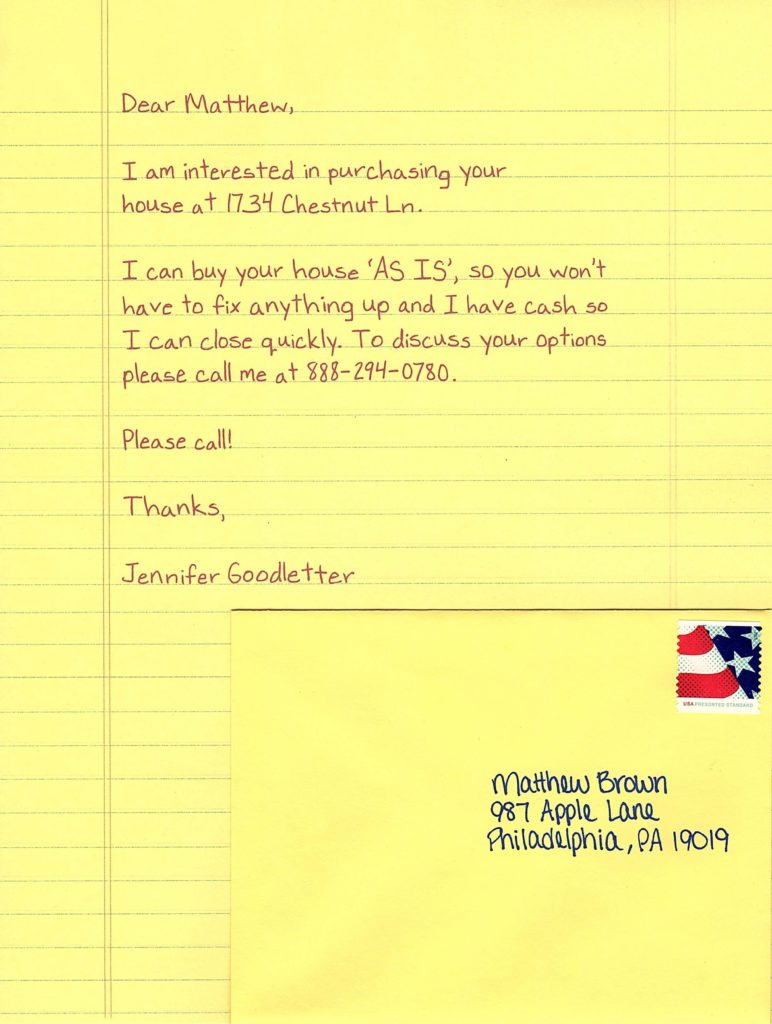 Dear Matthew,
I am interested in purchasing your
house at 1734 Chestnut Ln.
I can buy your house 'AS IS', so you won't
have to fix anything up and I have cash so
I can close quickly. To discuss your options
please call me at 888-294-0780.
Please call!
Thanks,
Jennifer Goodletter
USA PRESORTED STANDARD
Matthew Brown
987 Apple Lane
Philadelphia, PA 19019